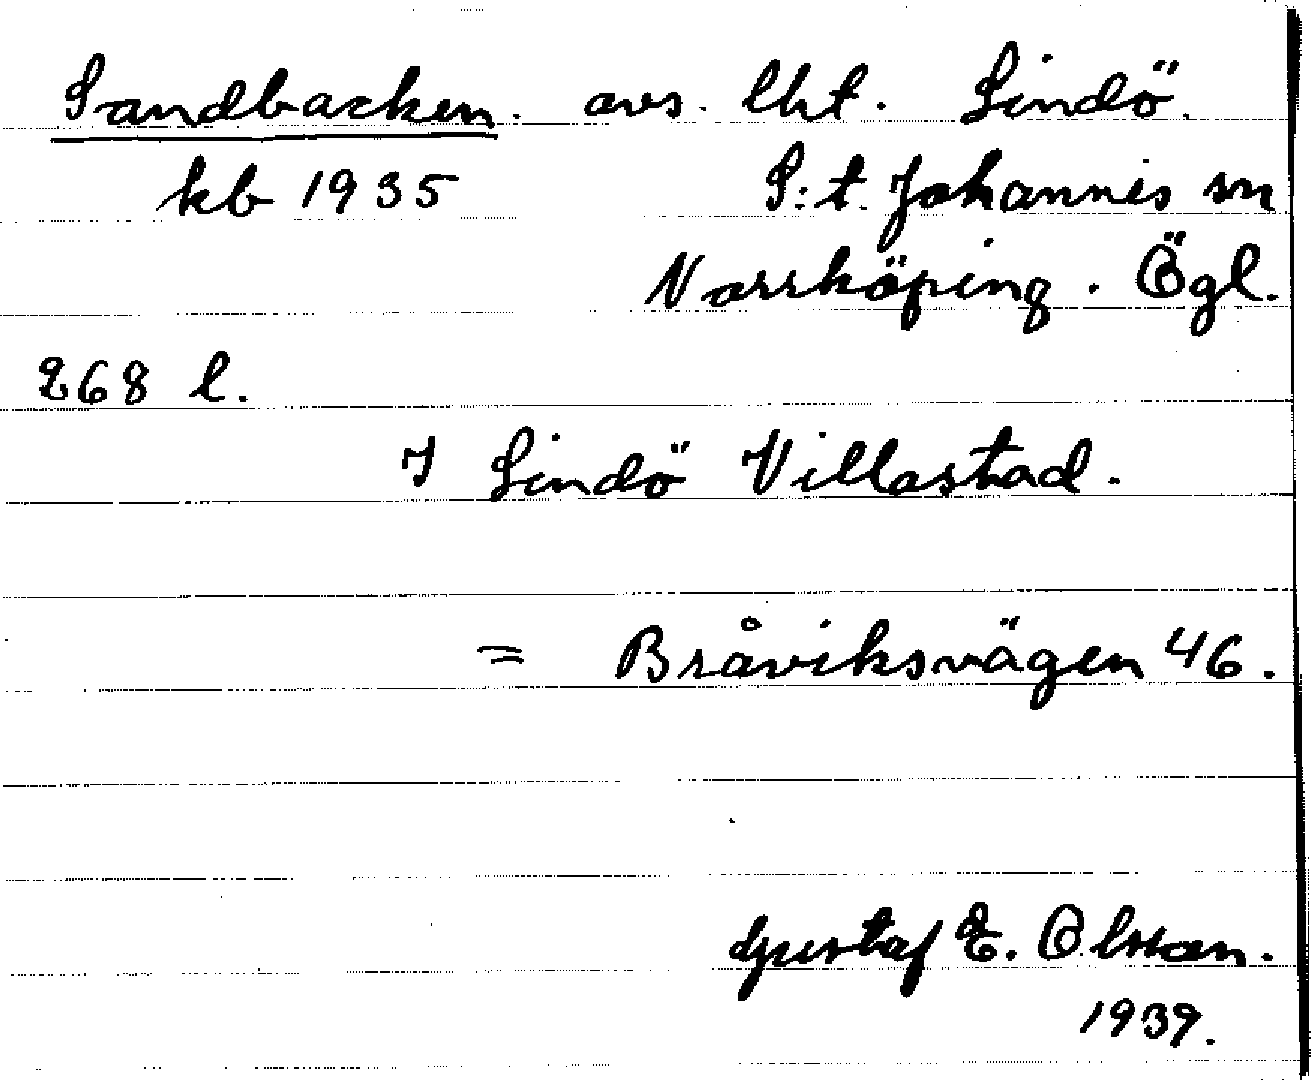 Sandbacken. avs. lht. Lindö.
kb 1935 S:t. Johannis sn
Norrköping. Ögl.
268 l.
I Lindö Villastad.
= Bråviksvägen 46.
Gustaf E. Olsson.
1939.